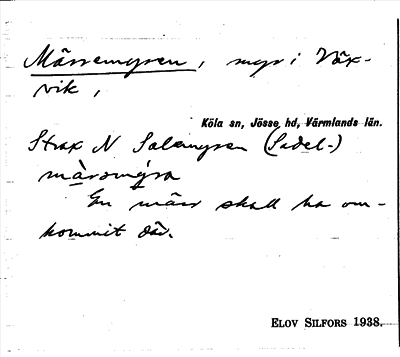 Märremyren, myr i Väx-
vik,
Köla sn, Jösse hd, Värmlands län.
Strax N Salemyren (Sadel-)
màrsmýra
En märr skall ha om-
kommit där.
ELOV SILFORS 1938.